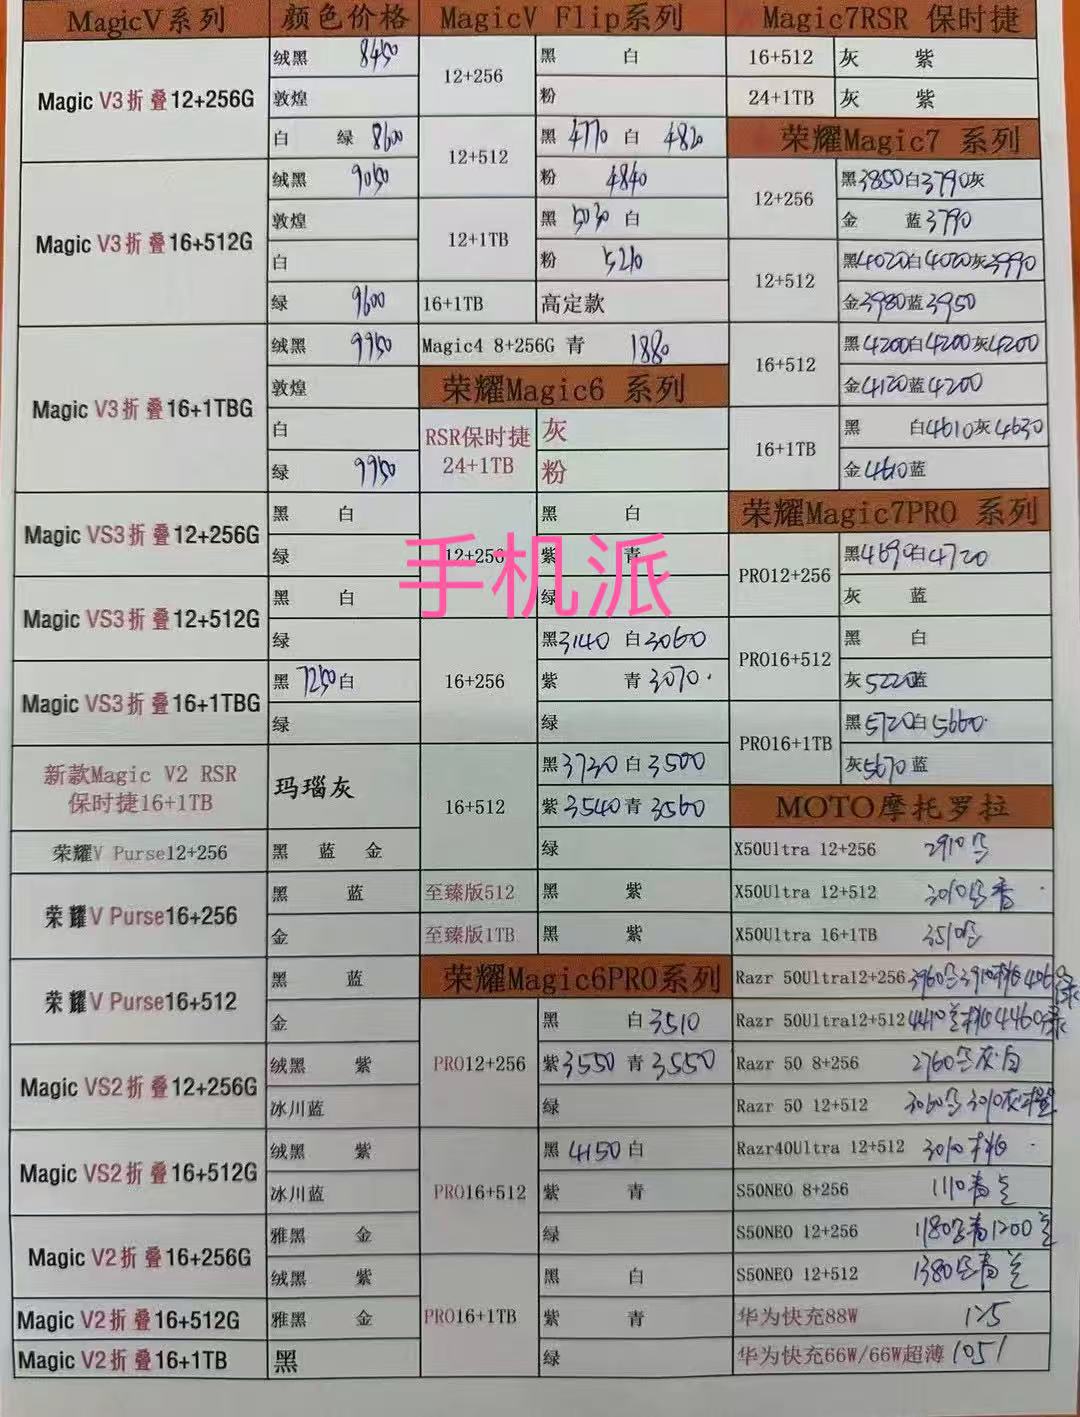 MagicV系列 颜色价格
Magic V3折叠12+256G
绒黑 8450
敦煌
白 绿 8600
Magic V3折叠16+512G
绒黑 9050
敦煌
白
绿 9600
Magic V3折叠16+1TBG
绒黑 9950
敦煌
白
绿 9950
Magic VS3折叠12+256G
黑 白
绿
Magic VS3折叠12+512G
黑 白
绿
Magic VS3折叠16+1TBG
黑 7250 白
绿
新款Magic V2 RSR
保时捷16+1TB
玛瑙灰
荣耀V Purse12+256
黑 蓝 金
荣耀V Purse16+256
黑 蓝
金
荣耀V Purse16+512
黑 蓝
金
Magic VS2折叠12+256G
绒黑 紫
冰川蓝
Magic VS2折叠16+512G
绒黑 紫
冰川蓝
Magic V2折叠16+256G
雅黑 金
绒黑 紫
Magic V2折叠16+512G
雅黑 金
Magic V2折叠16+1TB
黑
MagicV Flip系列
12+256
黑 白
粉
12+512
黑 4770 白 4820
粉 4840
12+1TB
黑 5030 白
粉 5210
16+1TB 高定款
Magic4 8+256G 青 1880
荣耀Magic6 系列
RSR保时捷
24+1TB
灰
粉
12+256
黑 白
紫 青
绿
16+256
黑3140 白3060
紫 青3070
绿
16+512
黑3730 白3500
紫3540 青3560
绿
至臻版512 黑 紫
至臻版1TB 黑 紫
荣耀Magic6PRO系列
PRO12+256
黑 白3510
紫3550 青3550
绿
PRO16+512
黑4150 白
紫 青
绿
PRO16+1TB
黑 白
紫 青
绿
Magic7RSR 保时捷
16+512 灰 紫
24+1TB 灰 紫
荣耀Magic7 系列
12+256
黑3850白3790灰
金 蓝3790
12+512
黑4020白4020灰3990
金3980蓝3950
16+512
黑4200白4200灰4200
金4120蓝4200
16+1TB
黑 白4610灰4630
金4610蓝
荣耀Magic7PRO 系列
PRO12+256
黑4690白4720
灰 蓝
PRO16+512
黑 白
灰5220蓝
PRO16+1TB
黑5720白5660
灰5670蓝
MOTO摩托罗拉
X50Ultra 12+256 2910
X50Ultra 12+512 3010
X50Ultra 16+1TB 3510
Razr 50Ultra12+256 3960 3910
Razr 50Ultra12+512 4410 4460
Razr 50 8+256 2760 灰白
Razr 50 12+512 3060 3010灰
Razr40Ultra 12+512 3010
S50NEO 8+256 1110青
S50NEO 12+256 1180 青1200
S50NEO 12+512 1380 青
华为快充88W 125
华为快充66W/66W超薄
手机派